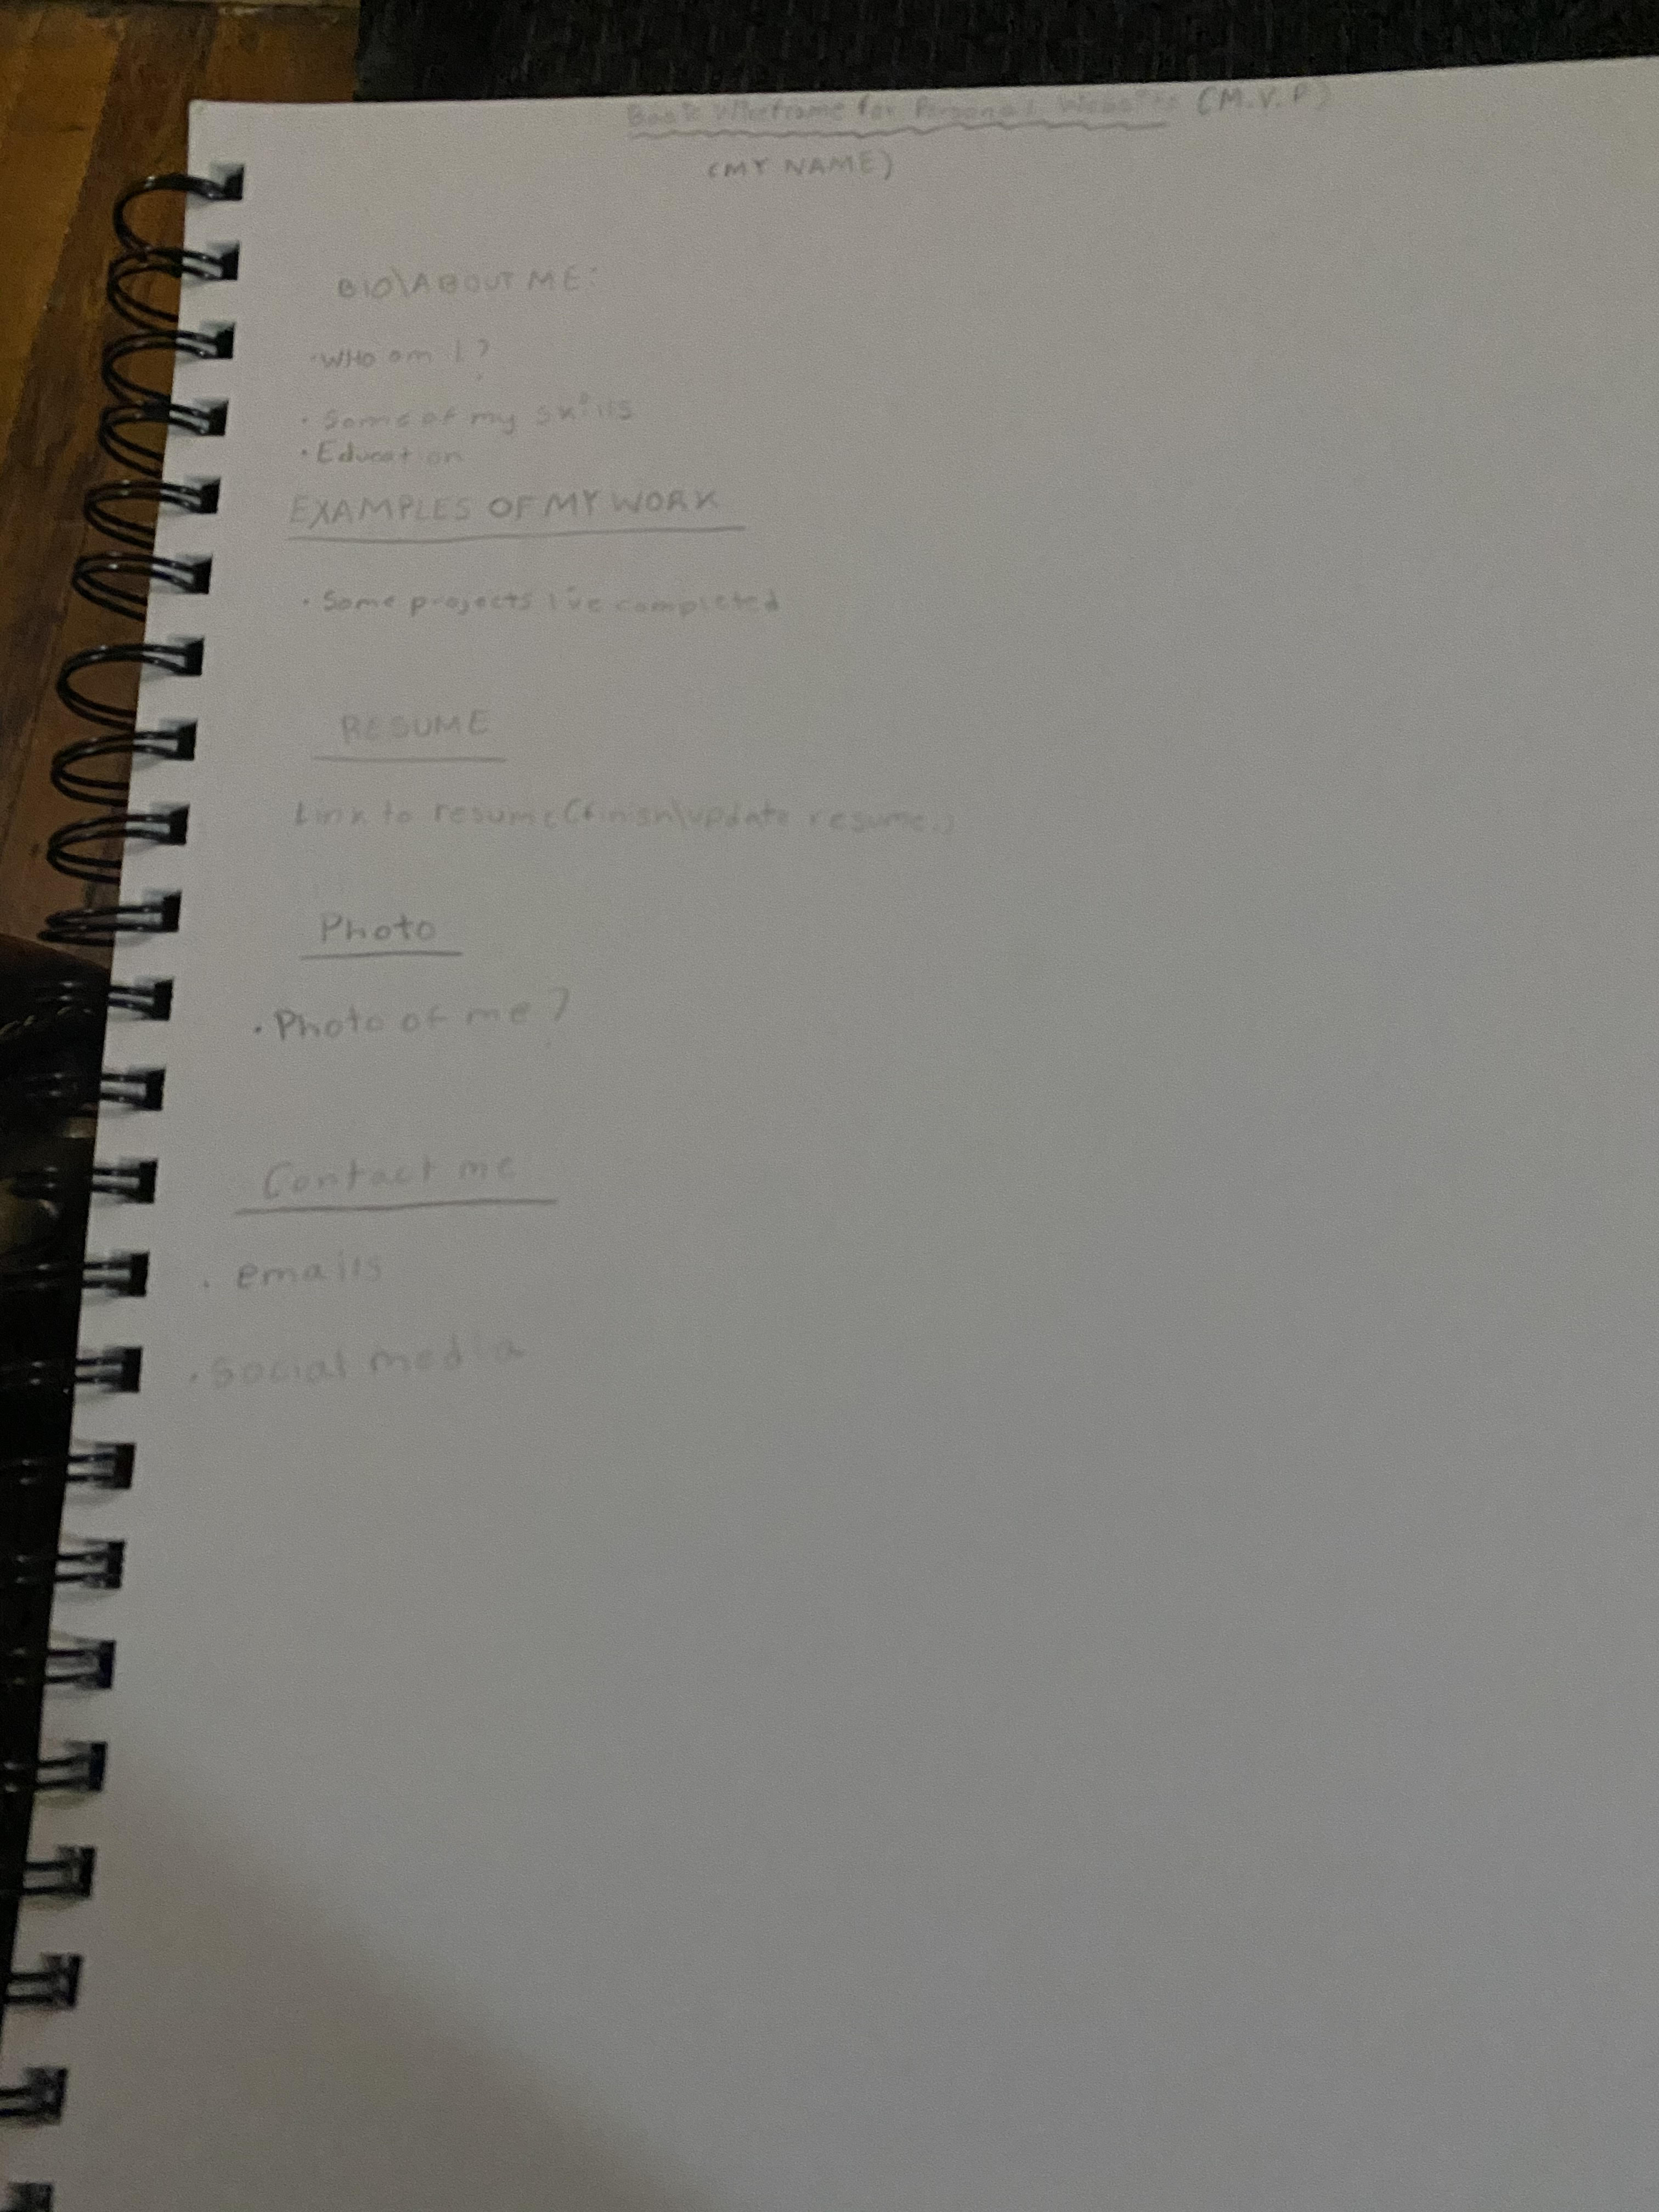 Basic Wireframe for Personal Website (M.V.P)
(MY NAME)
BIO\ABOUT ME:
· WHO am I?
· Some of my skills
· Education
EXAMPLES OF MY WORK
· Some projects I've completed
RESUME
Link to resume (finish\update resume.)
Photo
· Photo of me?
Contact me
· emails
· Social media